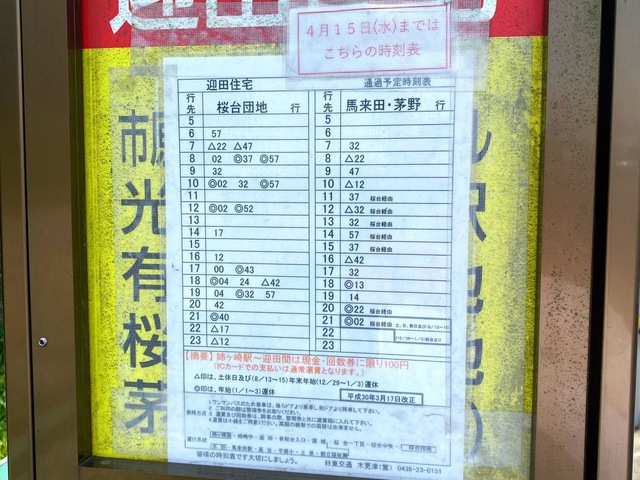 ４月１５日(水)までは
こちらの時刻表
迎田住宅
通過予定時刻表
行先 桜台団地 行
行先 馬来田・茅野 行
5
6 57
7 △22 △47
8 02 ◎37 ◎57
9 32
10 ◎02 32 ◎57
11
12 ◎02 ◎52
13
14 17
15
16 12
17 00 ◎43
18 ◎04 24 △42
19 04 ◎32 57
20 42
21 ◎40
22 △17
23 △12
5
6
7 32
8 △22
9 47
10 △12
11 37 桜台経由
12 △32 桜台経由
13 32 桜台経由
14 57 桜台経由
15 37 桜台経由
16 △42
17 32
18 ◎13
19 14
20 ◎22 桜台経由
21 ◎02 桜台経由
22
23
【摘要】姉ヶ崎駅～迎田間は現金・回数券に限り100円
(ICカードでの支払いは通常運賃となります。)
△印は、土休日及び(8/13～15)年末年始(12/29～1/3)運休
◎印は、年始(1/1～3)運休
平成30年3月17日改正
皆様の時刻表です大切にしましょう。
日東交通 木更津(営) 0438-23-0151
光有桜茅